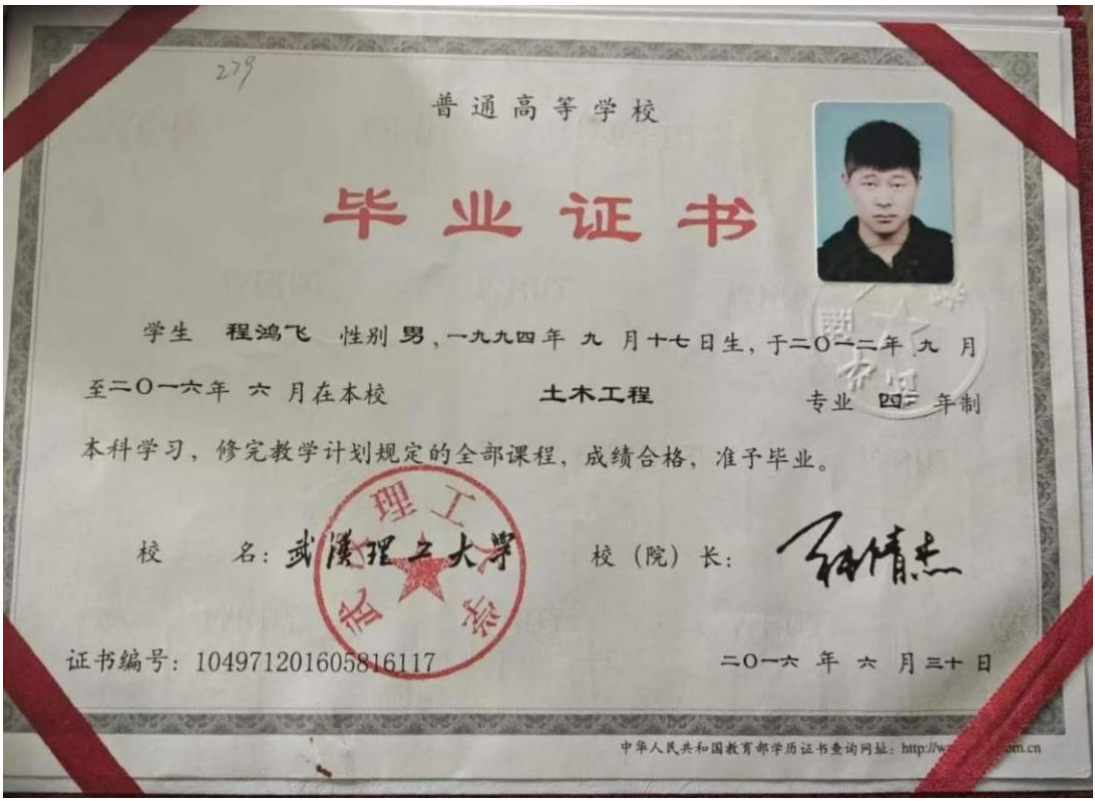 279
普通高等学校
毕业证书
学生 程鸿飞 性别 男，一九九四年 九 月十七日生，于二〇一二年 九 月
至二〇一六年 六 月在本校 土木工程 专业 四 年制
本科学习，修完教学计划规定的全部课程，成绩合格，准予毕业。
校 名：武汉理工大学 校（院）长：
武汉理工大学
证书编号：104971201605816117 二〇一六 年 六 月三十日
中华人民共和国教育部学历证书查询网址：http://w